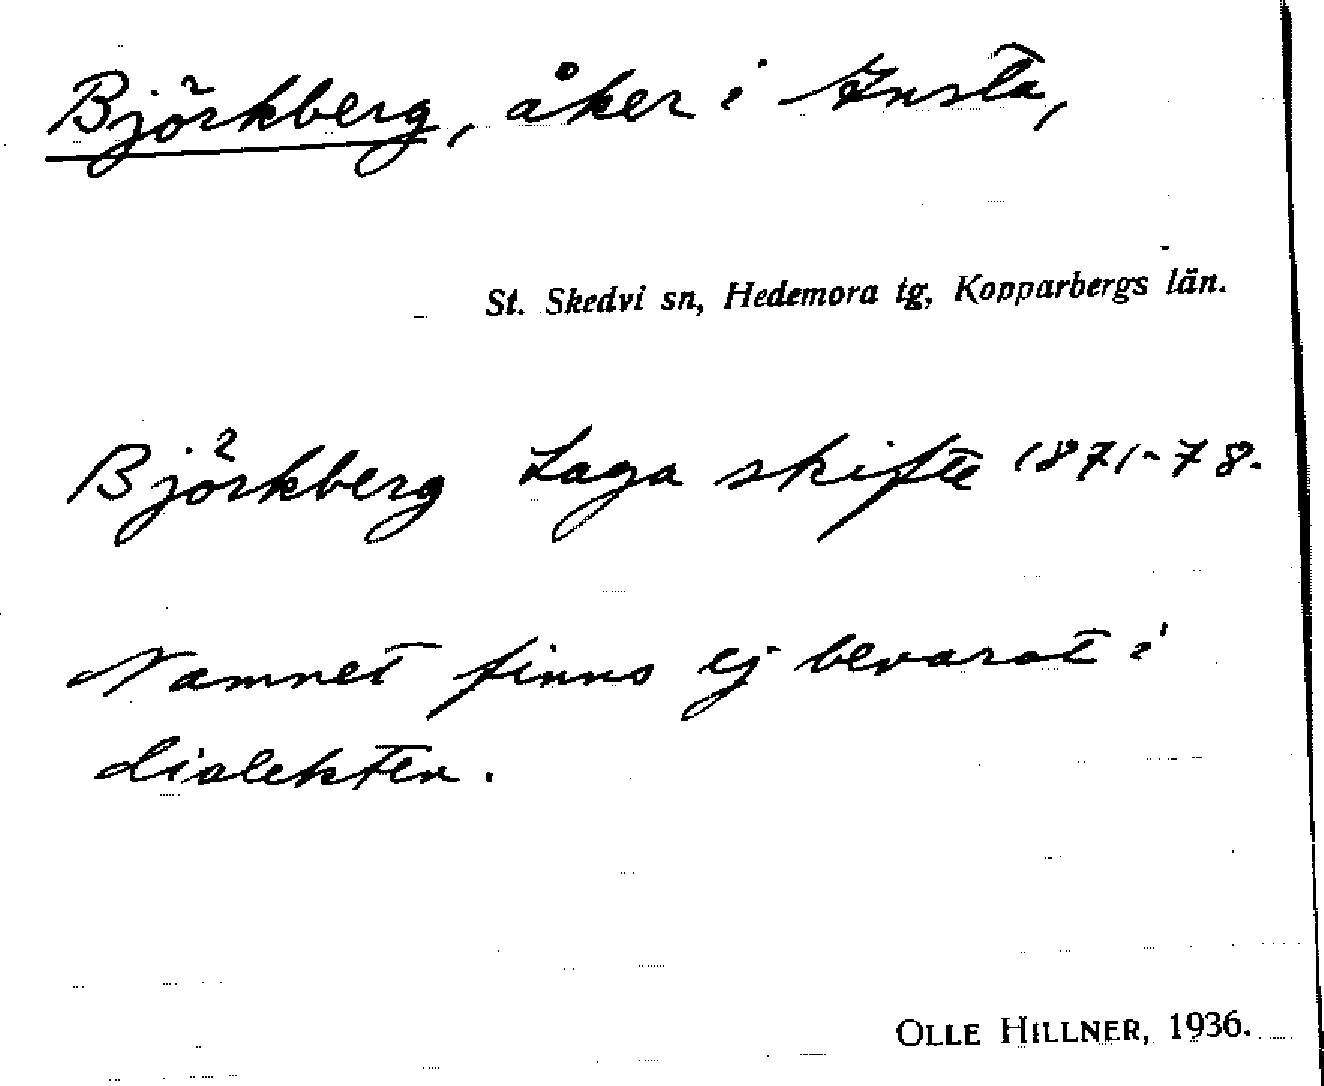 Björkberg, åker i Knsta,
St. Skedvi sn, Hedemora tg, Kopparbergs län.
Björkberg Laga skifte 1871-78.
Namnet finns ej bevarat i
dialekten.
OLLE HILLNER, 1936.